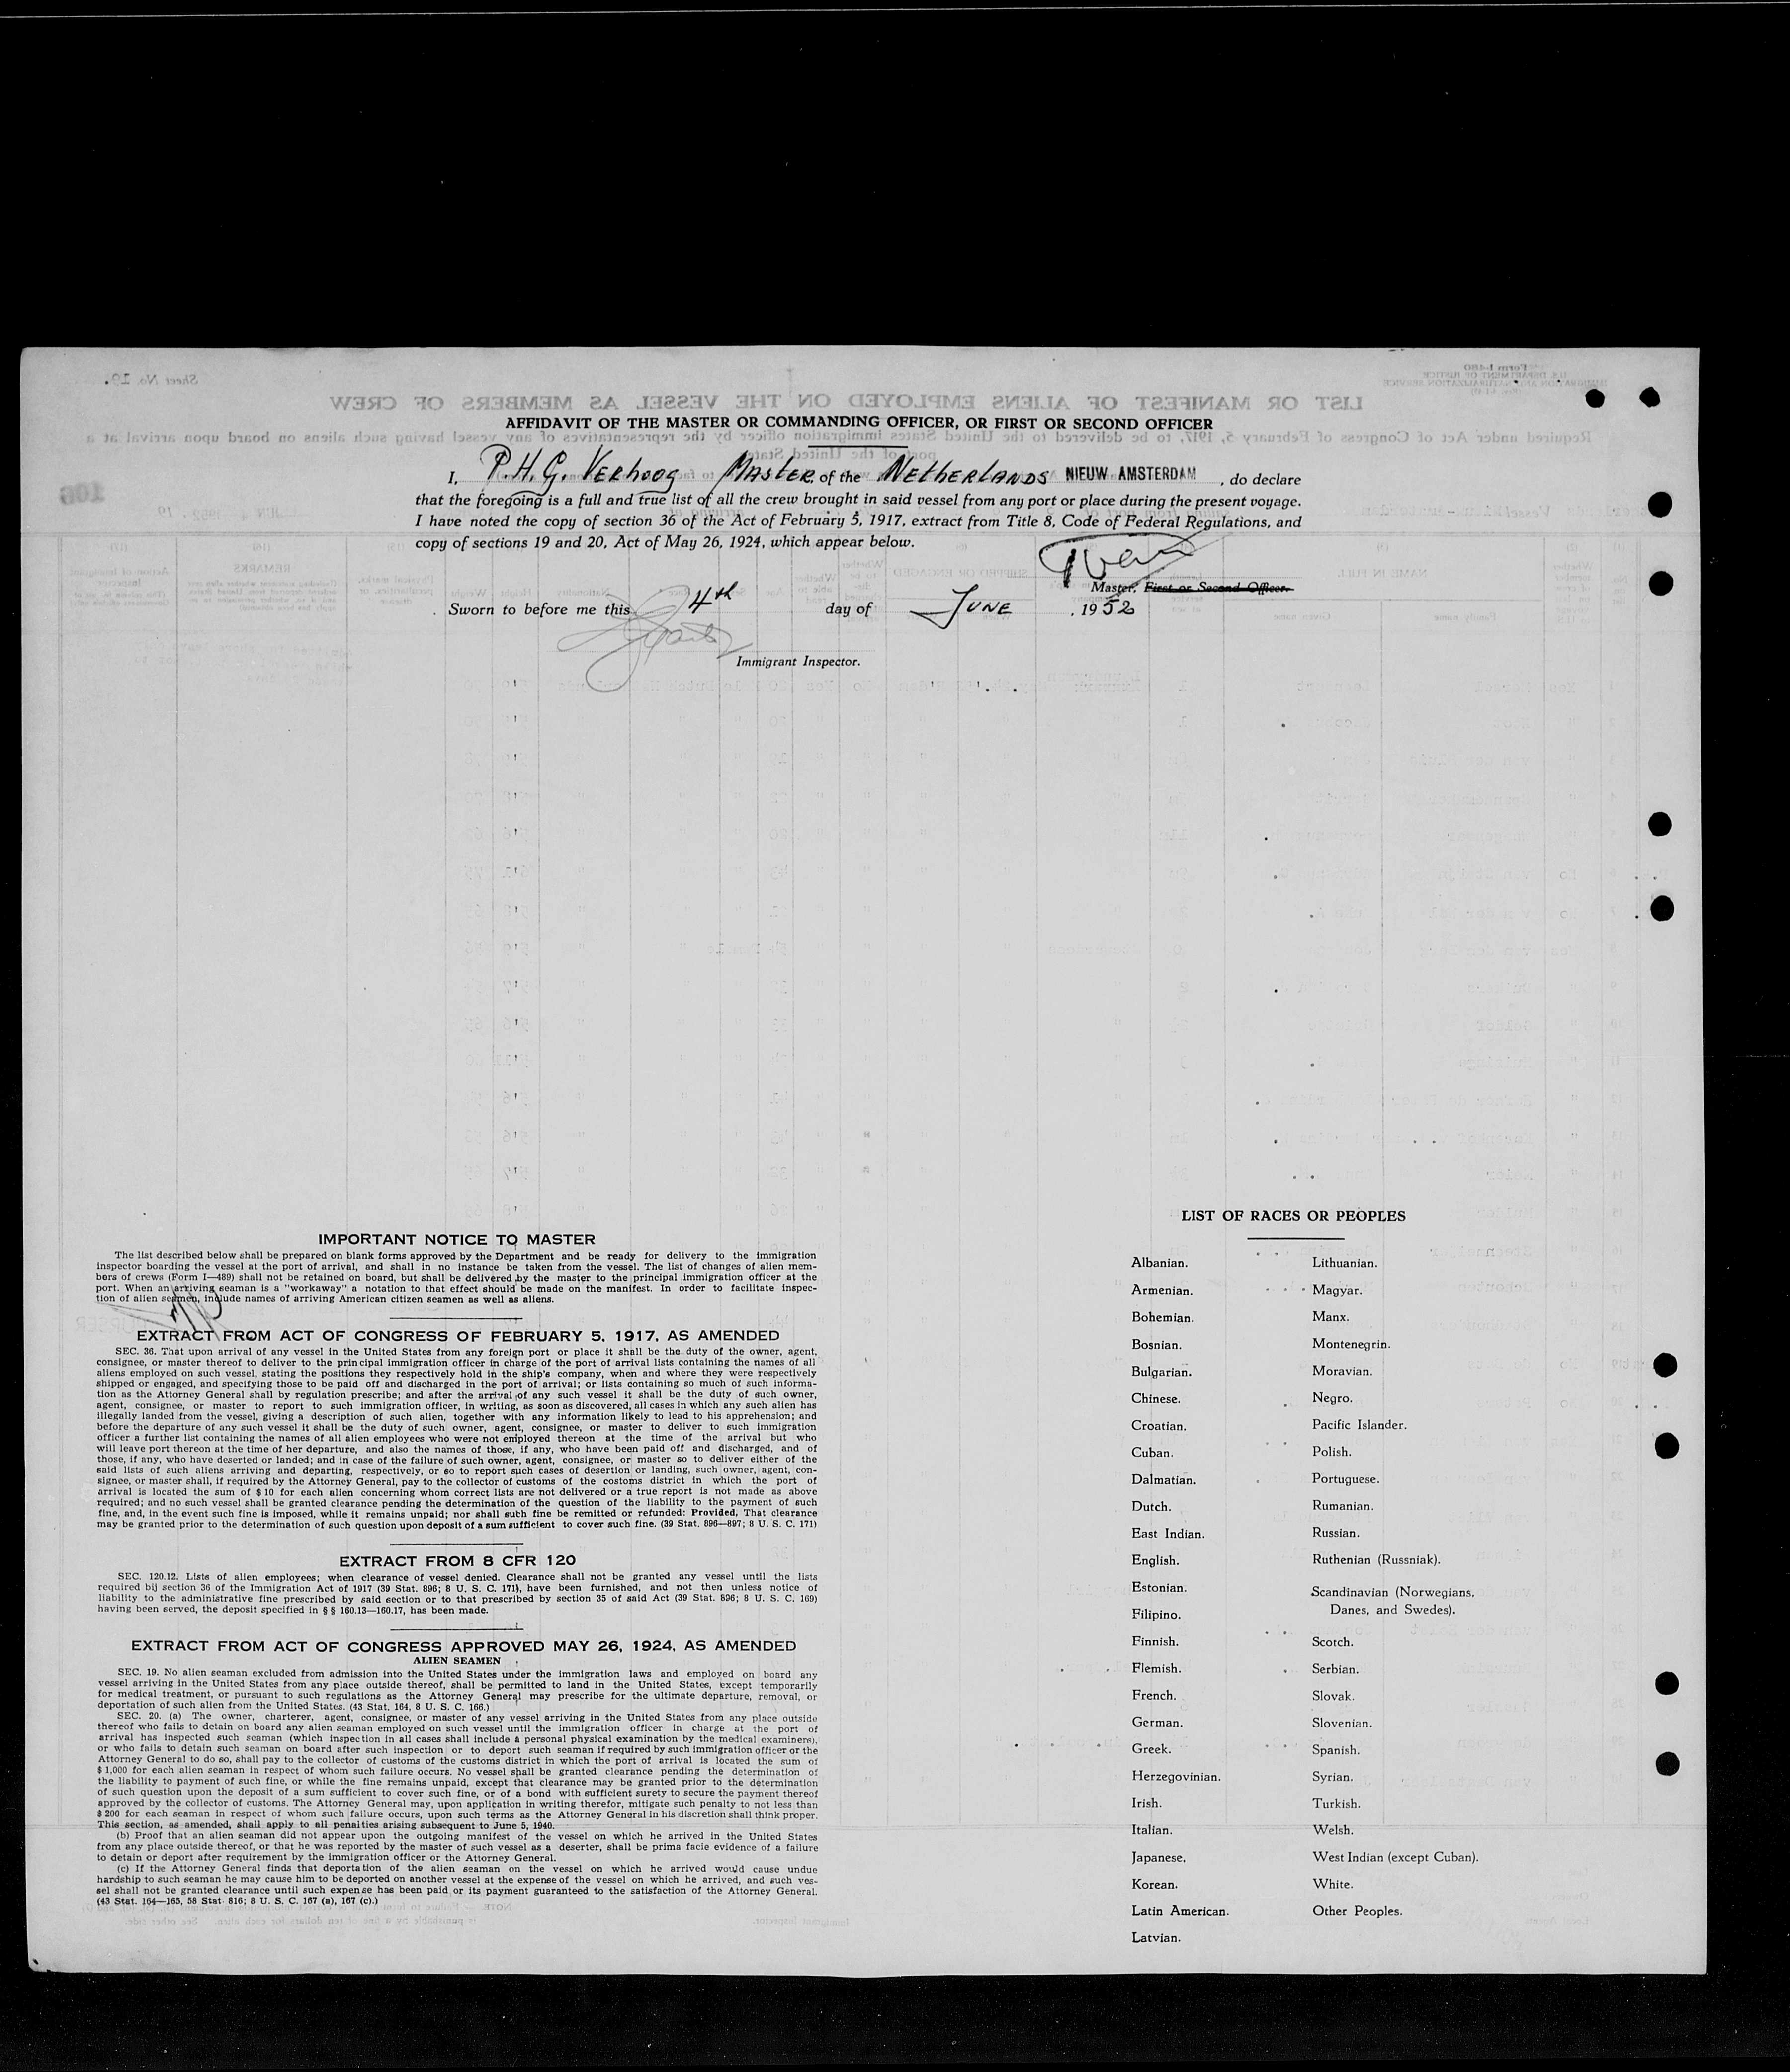 AFFIDAVIT OF THE MASTER OR COMMANDING OFFICER, OR FIRST OR SECOND OFFICER
I, P.H.G. Verhoog Master of the Netherlands NIEUW AMSTERDAM, do declare
that the foregoing is a full and true list of all the crew brought in said vessel from any port or place during the present voyage.
I have noted the copy of section 36 of the Act of February 5, 1917, extract from Title 8, Code of Federal Regulations, and
copy of sections 19 and 20, Act of May 26, 1924, which appear below.
Master, First or Second Officer.
Sworn to before me this 4th day of June, 1952
Immigrant Inspector.
IMPORTANT NOTICE TO MASTER
The list described below shall be prepared on blank forms approved by the Department and be ready for delivery to the immigration
inspector boarding the vessel at the port of arrival, and shall in no instance be taken from the vessel. The list of changes of alien mem-
bers of crews (Form I—489) shall not be retained on board, but shall be delivered by the master to the principal immigration officer at the
port. When an arriving seaman is a "workaway" a notation to that effect should be made on the manifest. In order to facilitate inspec-
tion of alien seamen, include names of arriving American citizen seamen as well as aliens.
EXTRACT FROM ACT OF CONGRESS OF FEBRUARY 5, 1917, AS AMENDED
SEC. 36. That upon arrival of any vessel in the United States from any foreign port or place it shall be the duty of the owner, agent,
consignee, or master thereof to deliver to the principal immigration officer in charge of the port of arrival lists containing the names of all
aliens employed on such vessel, stating the positions they respectively hold in the ship's company, when and where they were respectively
shipped or engaged, and specifying those to be paid off and discharged in the port of arrival; or lists containing so much of such informa-
tion as the Attorney General shall by regulation prescribe; and after the arrival of any such vessel it shall be the duty of such owner,
agent, consignee, or master to report to such immigration officer, in writing, as soon as discovered, all cases in which any such alien has
illegally landed from the vessel, giving a description of such alien, together with any information likely to lead to his apprehension; and
before the departure of any such vessel it shall be the duty of such owner, agent, consignee, or master to deliver to such immigration
officer a further list containing the names of all alien employees who were not employed thereon at the time of the arrival but who
will leave port thereon at the time of her departure, and also the names of those, if any, who have been paid off and discharged, and of
those, if any, who have deserted or landed; and in case of the failure of such owner, agent, consignee, or master so to deliver either of the
said lists of such aliens arriving and departing, respectively, or so to report such cases of desertion or landing, such owner, agent, con-
signee, or master shall, if required by the Attorney General, pay to the collector of customs of the costoms district in which the port of
arrival is located the sum of $10 for each alien concerning whom correct lists are not delivered or a true report is not made as above
required; and no such vessel shall be granted clearance pending the determination of the question of the liability to the payment of such
fine, and, in the event such fine is imposed, while it remains unpaid; nor shall suth fine be remitted or refunded: Provided, That clearance
may be granted prior to the determination of such question upon deposit of a sum sufficient to cover such fine. (39 Stat. 896—897; 8 U. S. C. 171)
EXTRACT FROM 8 CFR 120
SEC. 120.12. Lists of alien employees; when clearance of vessel denied. Clearance shall not be granted any vessel until the lists
required bij section 36 of the Immigration Act of 1917 (39 Stat. 896; 8 U. S. C. 171), have been furnished, and not then unless notice of
liability to the administrative fine prescribed by said section or to that prescribed by section 35 of said Act (39 Stat. 896; 8 U. S. C. 169)
having been served, the deposit specified in §§ 160.13—160.17, has been made.
EXTRACT FROM ACT OF CONGRESS APPROVED MAY 26, 1924, AS AMENDED
ALIEN SEAMEN
SEC. 19. No alien seaman excluded from admission into the United States under the immigration laws and employed on board any
vessel arriving in the United States from any place outside thereof, shall be permitted to land in the United States, except temporarily
for medical treatment, or pursuant to such regulations as the Attorney General may prescribe for the ultimate departure, removal, or
deportation of such alien from the United States. (43 Stat. 164, 8 U. S. C. 166.)
SEC. 20. (a) The owner, charterer, agent, consignee, or master of any vessel arriving in the United States from any place outside
thereof who fails to detain on board any alien seaman employed on such vessel until the immigration officer in charge at the port of
arrival has inspected such seaman (which inspection in all cases shall include a personal physical examination by the medical examiners),
or who fails to detain such seaman on board after such inspection or to deport such seaman if required by such immigration officer or the
Attorney General to do so, shall pay to the collector of customs of the customs district in which the port of arrival is located the sum of
$1,000 for each alien seaman in respect of whom such failure occurs. No vessel shall be granted clearance pending the determination of
the liability to payment of such fine, or while the fine remains unpaid, except that clearance may be granted prior to the determination
of such question upon the deposit of a sum sufficient to cover such fine, or of a bond with sufficient surety to secure the payment thereof
approved by the collector of customs. The Attorney General may, upon application in writing therefor, mitigate such penalty to not less than
$200 for each seaman in respect of whom such failure occurs, upon such terms as the Attorney General in his discretion shall think proper.
This section, as amended, shall apply to all penalties arising subsequent to June 5, 1940.
(b) Proof that an alien seaman did not appear upon the outgoing manifest of the vessel on which he arrived in the United States
from any place outside thereof, or that he was reported by the master of such vessel as a deserter, shall be prima facie evidence of a failure
to detain or deport after requirement by the immigration officer or the Attorney General.
(c) If the Attorney General finds that deportation of the alien seaman on the vessel on which he arrived would cause undue
hardship to such seaman he may cause him to be deported on another vessel at the expense of the vessel on which he arrived, and such ves-
sel shall not be granted clearance until such expense has been paid or its payment guaranteed to the satisfaction of the Attorney General.
(43 Stat. 164—165, 58 Stat. 816; 8 U. S. C. 167 (a), 167 (c).)
LIST OF RACES OR PEOPLES
Albanian.
Armenian.
Bohemian.
Bosnian.
Bulgarian.
Chinese.
Croatian.
Cuban.
Dalmatian.
Dutch.
East Indian.
English.
Estonian.
Filipino.
Finnish.
Flemish.
French.
German.
Greek.
Herzegovinian.
Irish.
Italian.
Japanese.
Korean.
Latin American.
Latvian.
Lithuanian.
Magyar.
Manx.
Montenegrin.
Moravian.
Negro.
Pacific Islander.
Polish.
Portuguese.
Rumanian.
Russian.
Ruthenian (Russniak).
Scandinavian (Norwegians,
Danes, and Swedes).
Scotch.
Serbian.
Slovak.
Slovenian.
Spanish.
Syrian.
Turkish.
Welsh.
West Indian (except Cuban).
White.
Other Peoples.